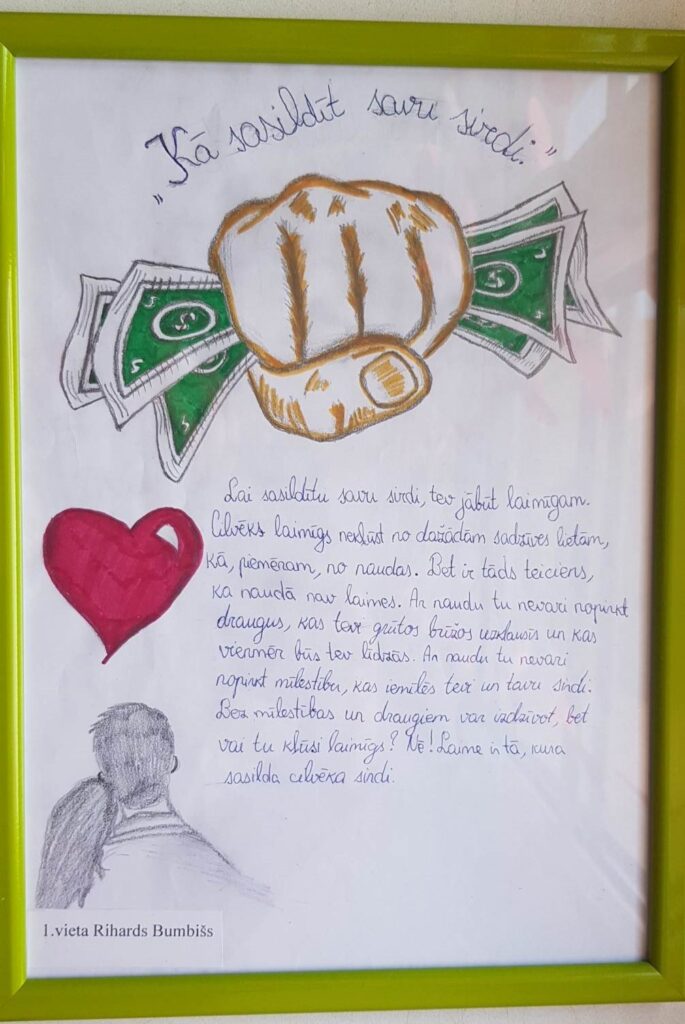 „Kā sasildīt savu sirdi.”
Lai sasildītu savu sirdi, tev jābūt laimīgam.
Cilvēks laimīgs nekļūst no dažādām sadzīves lietām,
kā, piemēram, no naudas. Bet ir tāds teiciens,
ka naudā nav laimes. Ar naudu tu nevari nopirkt
draugus, kas tevi grūtos brīžos uzklausīs un kas
vienmēr būs tev līdzās. Ar naudu tu nevari
nopirkt mīlestību, kas iemīlēs tevi un tavu sirdi.
Bez mīlestības un draugiem var izdzīvot, bet
vai tu kļūsi laimīgs? Nē! Laime ir tā, kura
sasilda cilvēka sirdi.
1.vieta Rihards Bumbišs